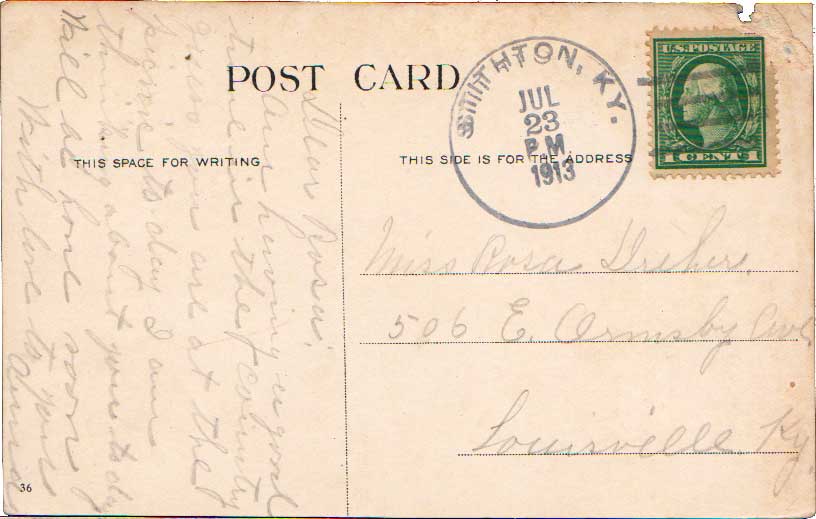 POST CARD
THIS SPACE FOR WRITING
THIS SIDE IS FOR THE ADDRESS
SMITHTON, KY.
JUL
23
P M
1913
U.S. POSTAGE
1 CENT 1
Dear Rosa,
Am having a good
time in the country
guess you are at the
picnic to day I am
thinking about you to day
Will be home soon
With love to you
Miss Rosa
506 E. Ormsby Ave
Louisville Ky.
36